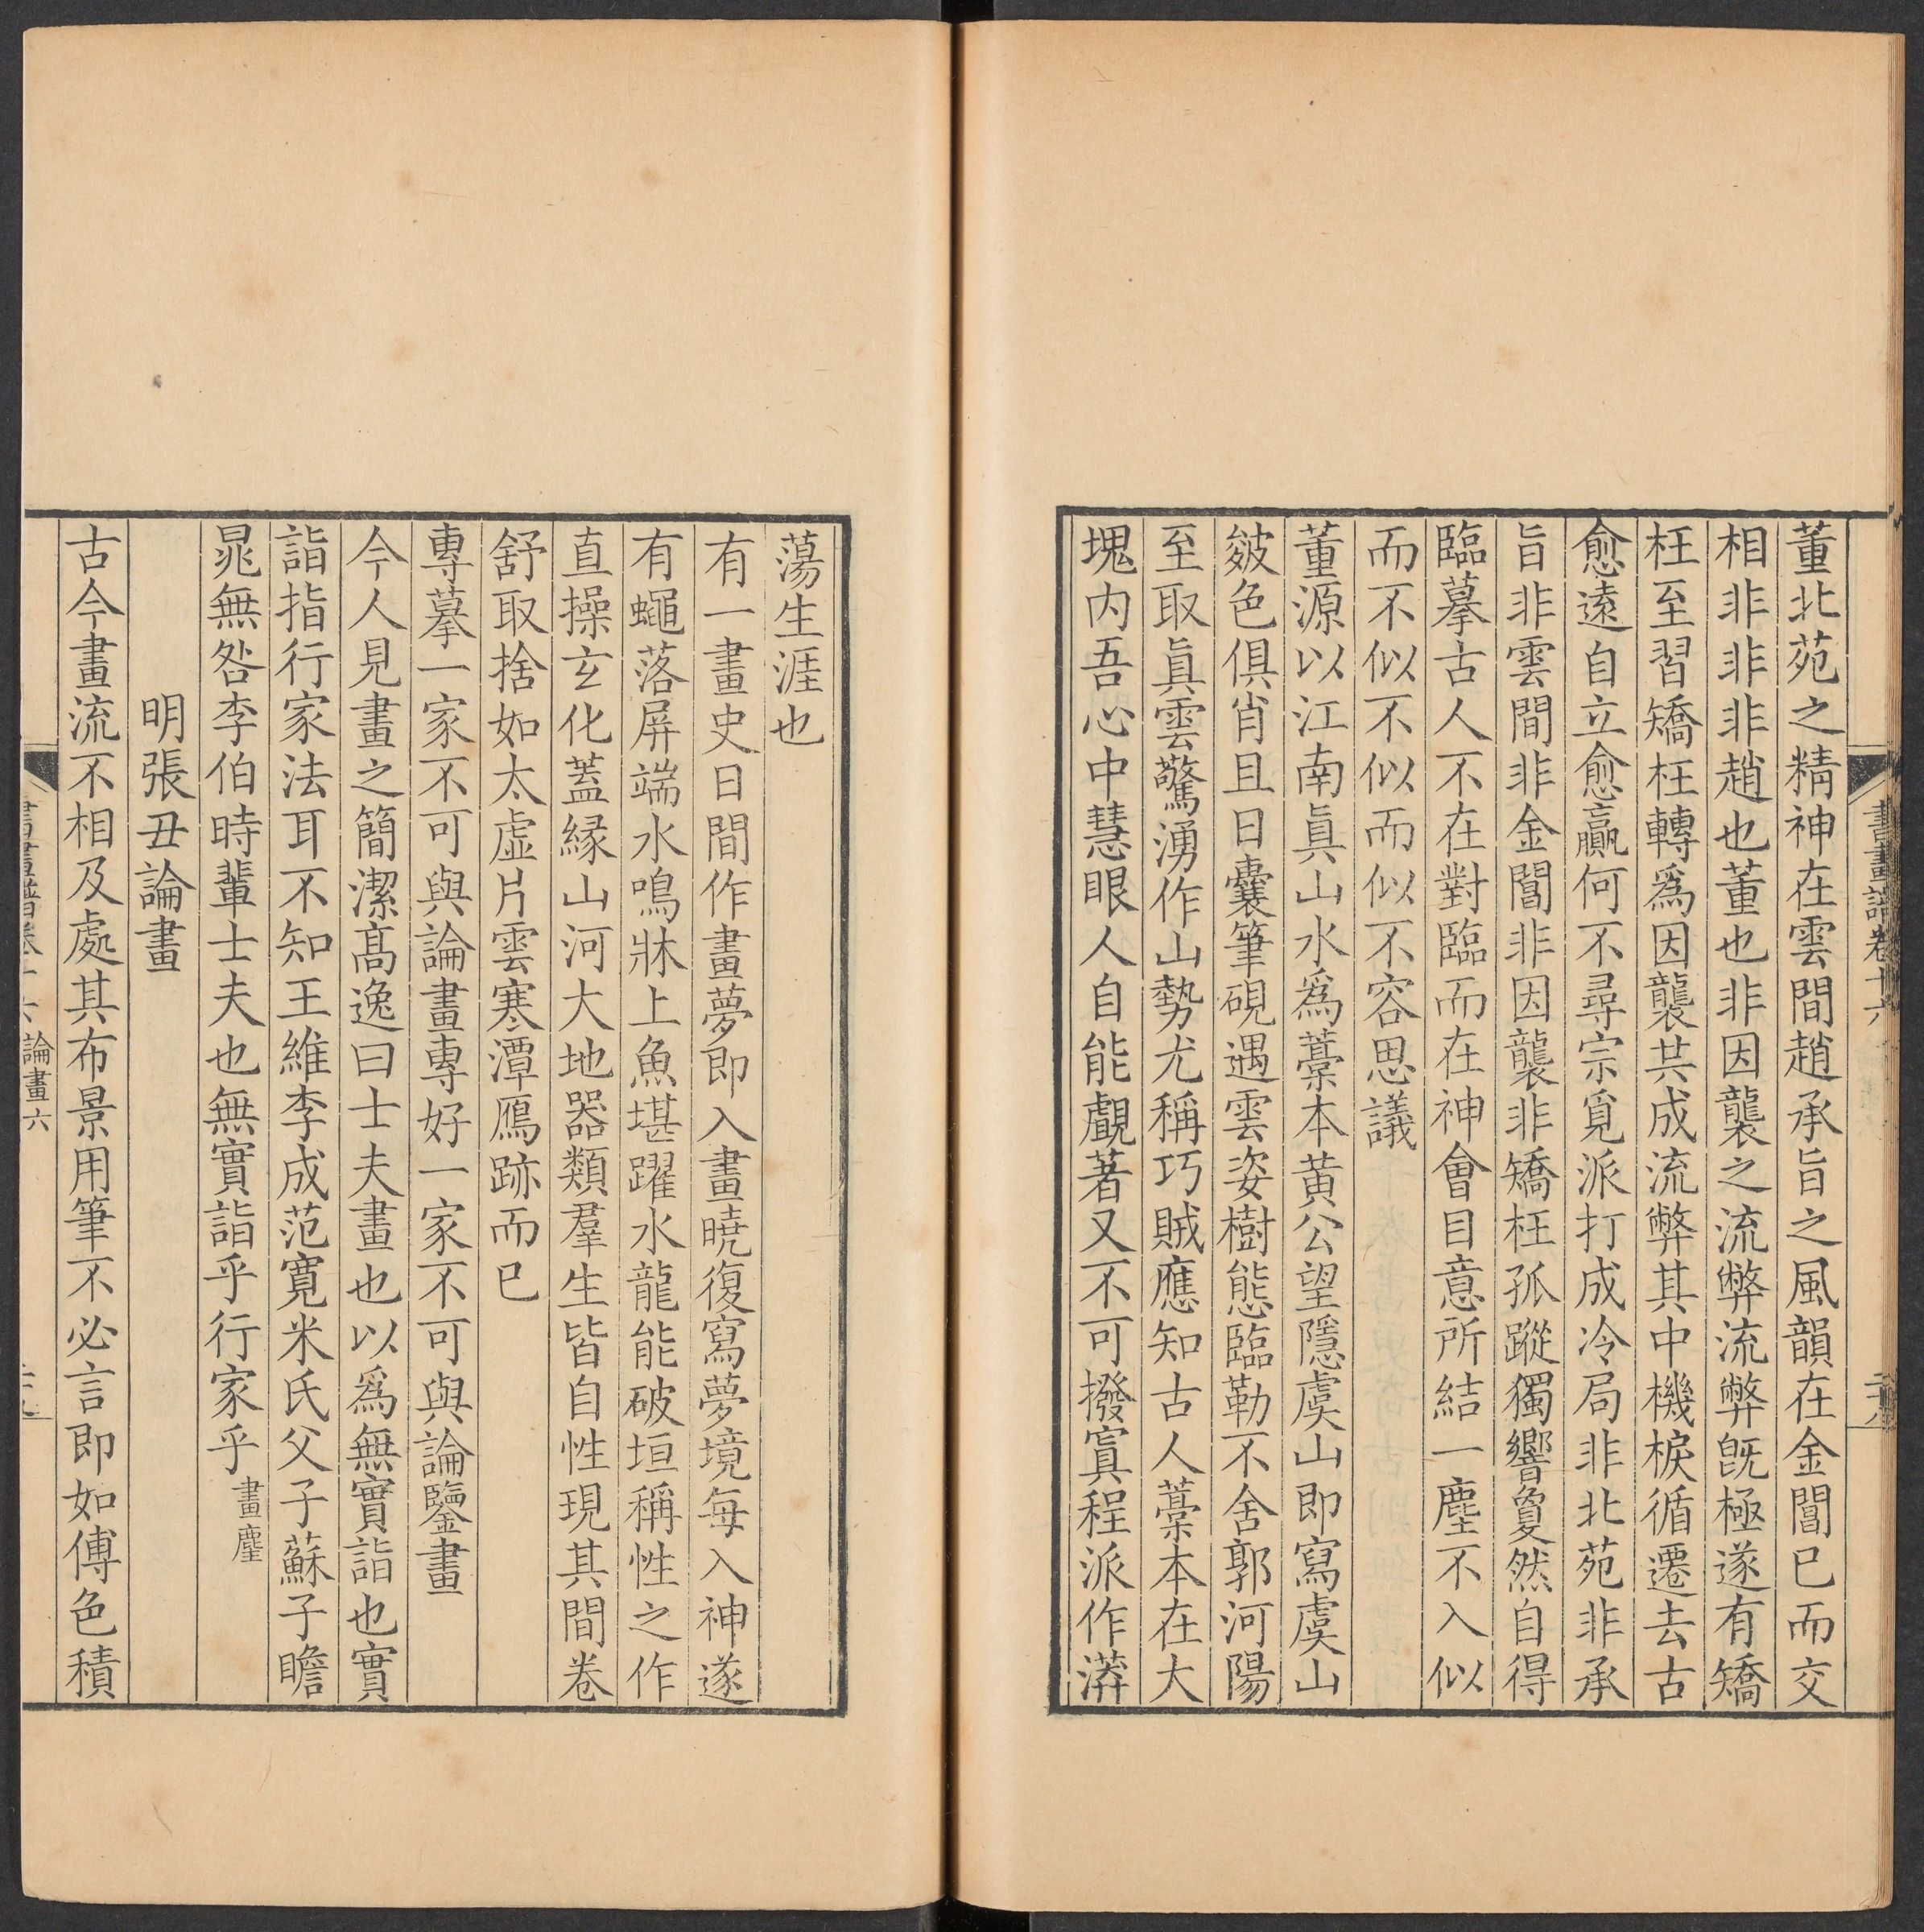 書畫譜卷十六
董北苑之精神在雲間趙承旨之風韻在金閶已而交
相非非非趙也董也非因襲之流弊流弊旣極遂有矯
枉至習矯枉轉爲因襲共成流弊其中機棙循遷去古
愈遠自立愈羸何不尋宗覓派打成冷局非北苑非承
旨非雲間非金閶非因襲非矯枉孤蹤獨響敻然自得
臨摹古人不在對臨而在神會目意所結一塵不入似
而不似不似而似不容思議
董源以江南眞山水爲藁本黃公望隱虞山即寫虞山
皴色俱肖且日囊筆硯遇雲姿樹態臨勒不舍郭河陽
至取眞雲驚湧作山勢尤稱巧賊應知古人藁本在大
塊内吾心中慧眼人自能覷著又不可撥寘程派作漭
蕩生涯也
有一畫史日間作畫夢即入畫曉復寫夢境每入神遂
有蠅落屏端水鳴牀上魚堪躍水龍能破垣稱性之作
直操玄化蓋緣山河大地器類羣生皆自性現其間卷
舒取捨如太虛片雲寒潭鴈跡而已
專摹一家不可與論畫專好一家不可與論鑒畫
今人見畫之簡潔高逸曰士夫畫也以爲無實詣也實
詣指行家法耳不知王維李成范寬米氏父子蘇子瞻
晁無咎李伯時輩士夫也無實詣乎行家乎畫塵
明張丑論畫
古今畫流不相及處其布景用筆不必言即如傅色積
書畫譜卷十六 論畫六